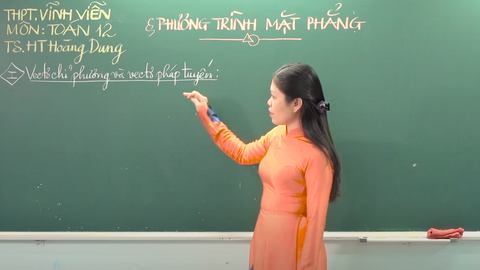 THPT. VĨNH VIỄN
MÔN: TOÁN 12
TS. HT Hoàng Dung
§, PHƯƠNG TRÌNH MẶT PHẲNG
I Vectơ chỉ phương và vectơ pháp tuyến: